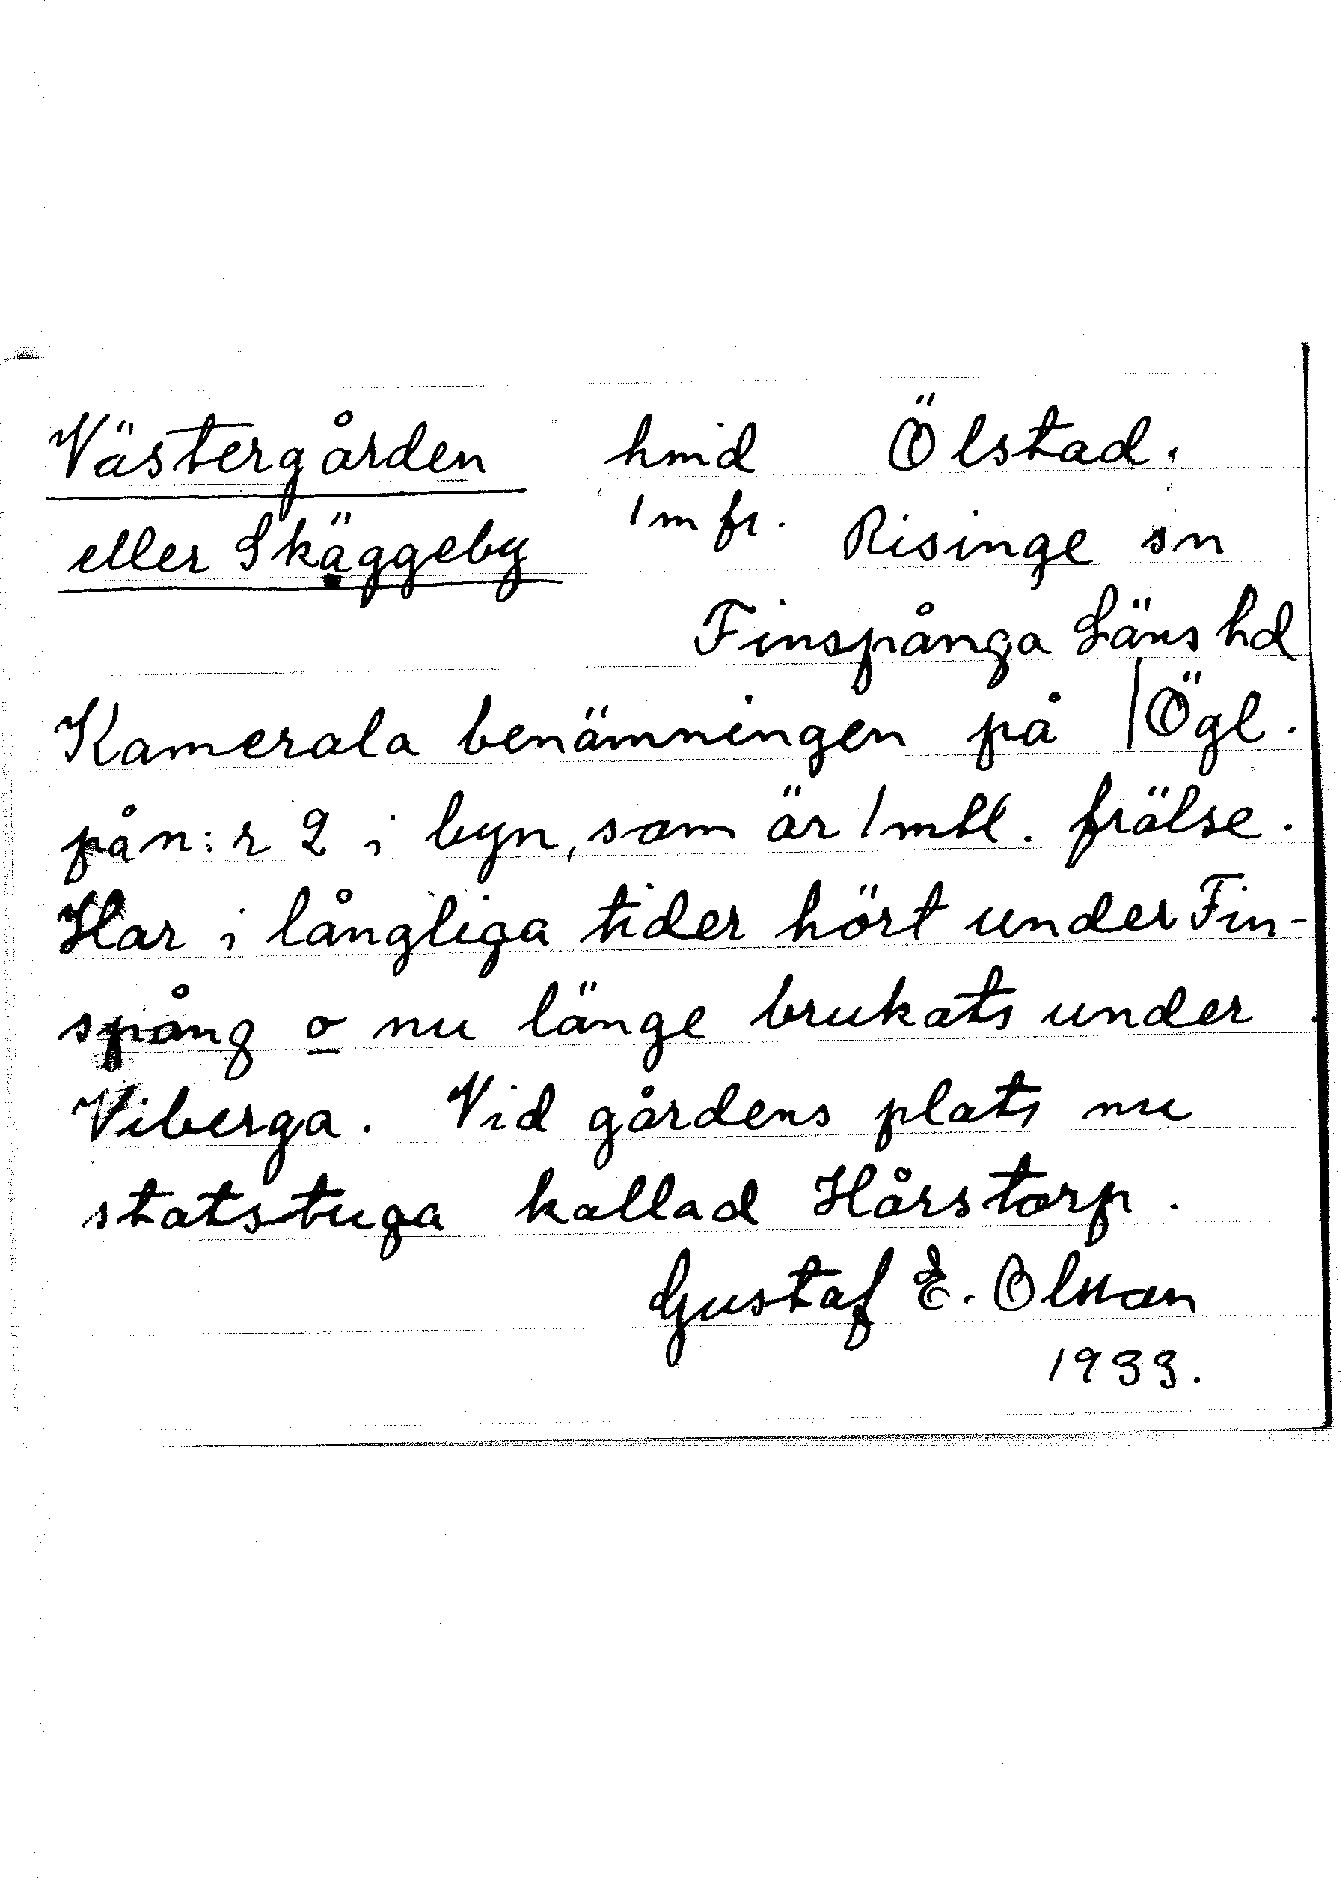 Västergården hmd Ölstad.
eller Skäggeby 1 m fr. Risinge sn
Finspånga Läns hd
Kamerala benämningen på / Ögl.
på n:r 2 i byn, som är 1 mtl. frälse.
Har i långliga tider hört under Fin-
spång o nu länge brukats under
Viberga. Vid gårdens plats nu
statstuga kallad Hårstorp.
Gustaf E. Olsson
1933.